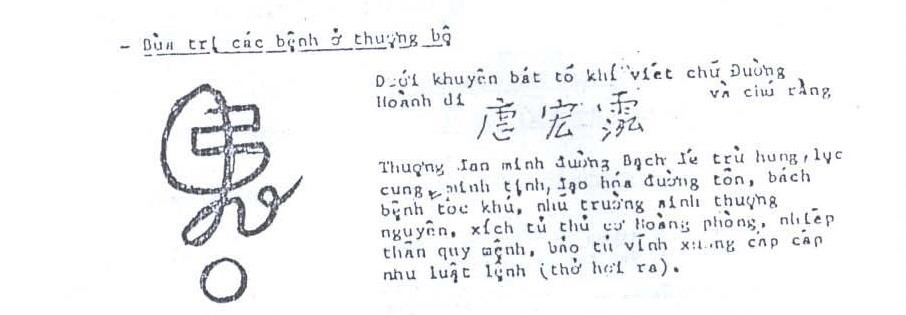 - Bùa trị các bệnh ở thượng bộ
Dưới khuyên bát tố khí viết chữ Đường
Hoành di 唐 宏 và chú rằng
Thượng đan minh đường Bạch đế trừ hung, lục
cung minh tinh, đạo hóa đường tôn, bách
bệnh tốc khú, nhũ trường sinh thượng
nguyên, xích tử thủ cư Hoàng phòng, nhiếp
thần quy mệnh, bảo tử vĩnh xương cấp cấp
như luật lệnh (thở hơi ra).